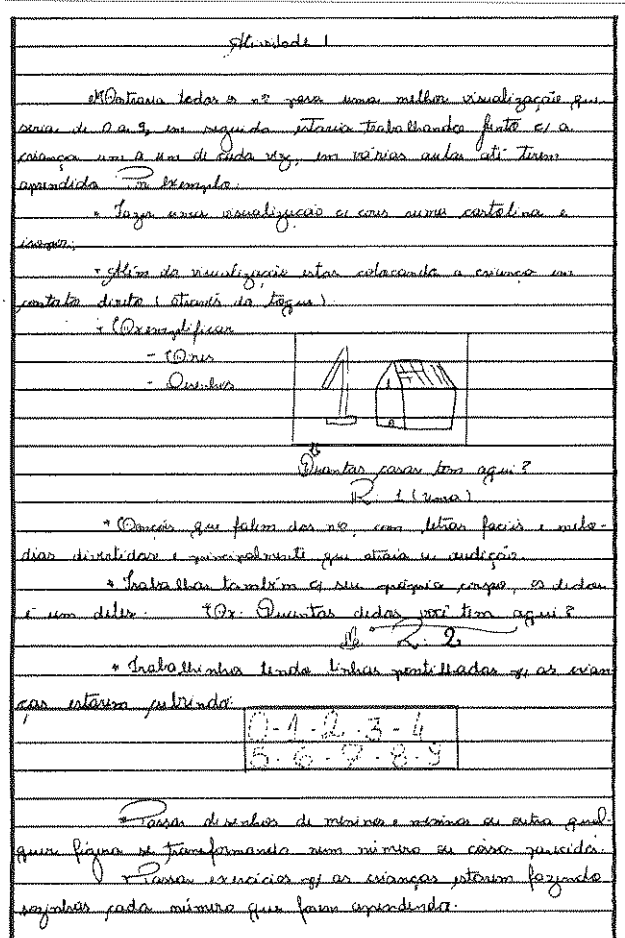 Atividade 1
Mostraria todos os nos para uma melhor visualização que
seria de 0 a 9, em seguida estaria trabalhando junto c/ a
criança um a um de cada vez, em várias aulas até terem
aprendido. Por exemplo:
* Fazer uma visualização c/ cores numa cartolina e
isopor;
* Além da visualização estar colocando a criança em
contato direto (através do toque)
* Exemplificar
- Cores
- Desenhos
1
Quantas casas tem aqui?
R. 1 (uma)
* Canções que falem dos nos, com letras faceis e melo-
dias divertidas e principalmente que atraia a audição.
* Trabalhar também c/ seu próprio corpo, os dedos
é um deles. Ex: Quantos dedos você tem aqui?
R: 2
* Trabalhinho tendo linhas pontilhadas p/ as crian
ças estarem cubrindo:
0 - 1 - 2 - 3 - 4
5 - 6 - 7 - 8 - 9
* Passar desenhos de meninos e meninas ou outra qual-
quer figura se transformando num número ou coisa parecida.
* Passar exercícios p/ as crianças estarem fazendo
sozinhas cada número que forem aprendendo.